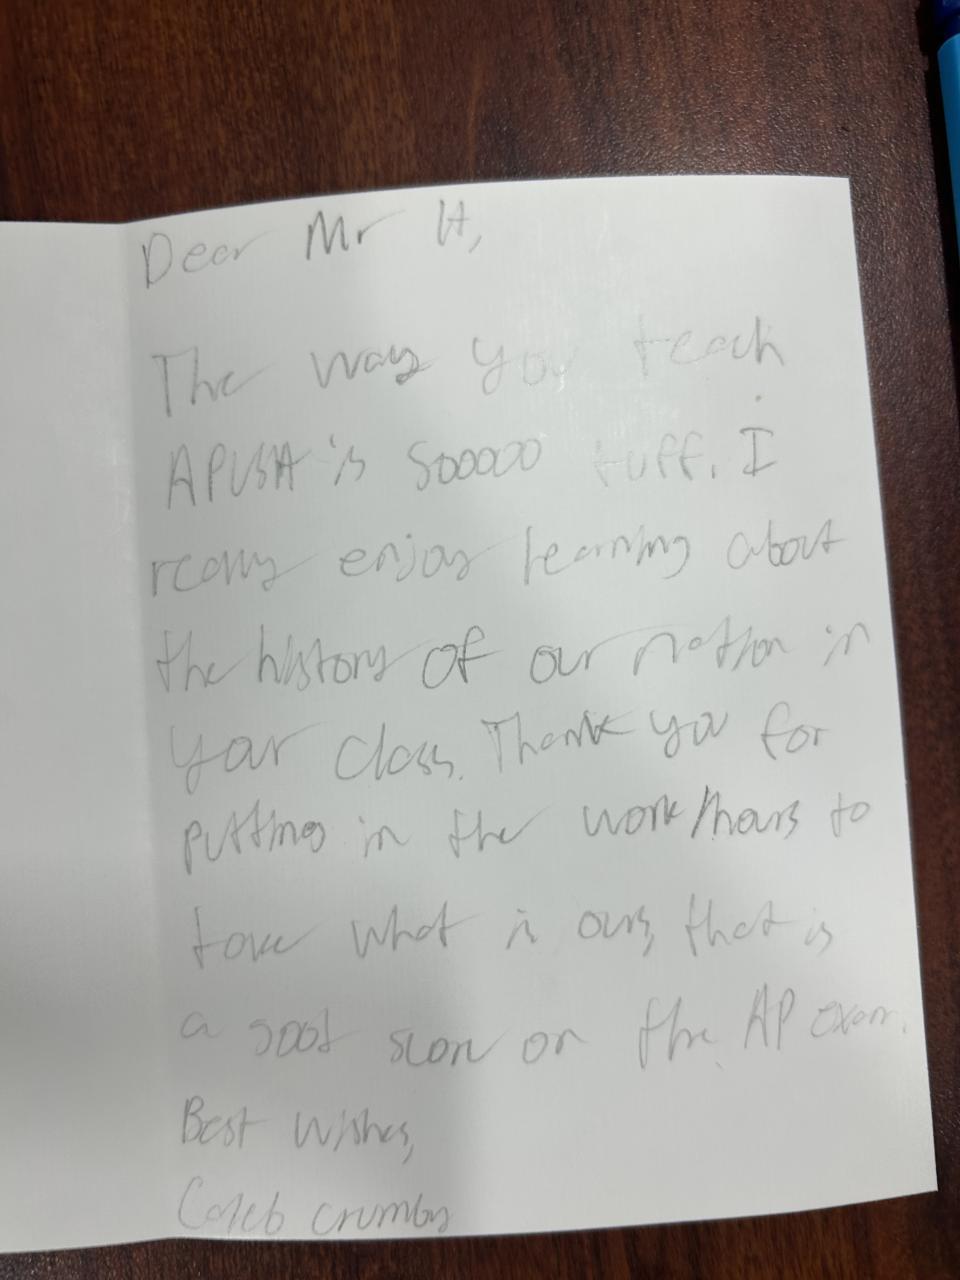 Dear Mr H,
The way you teach
APUSH is sooooo tuff. I
really enjoy learning about
the history of our nation in
your class. Thank you for
putting in the work/hours to
take what is ours, that is
a good score on the AP exam.
Best wishes,
Caleb Crumby